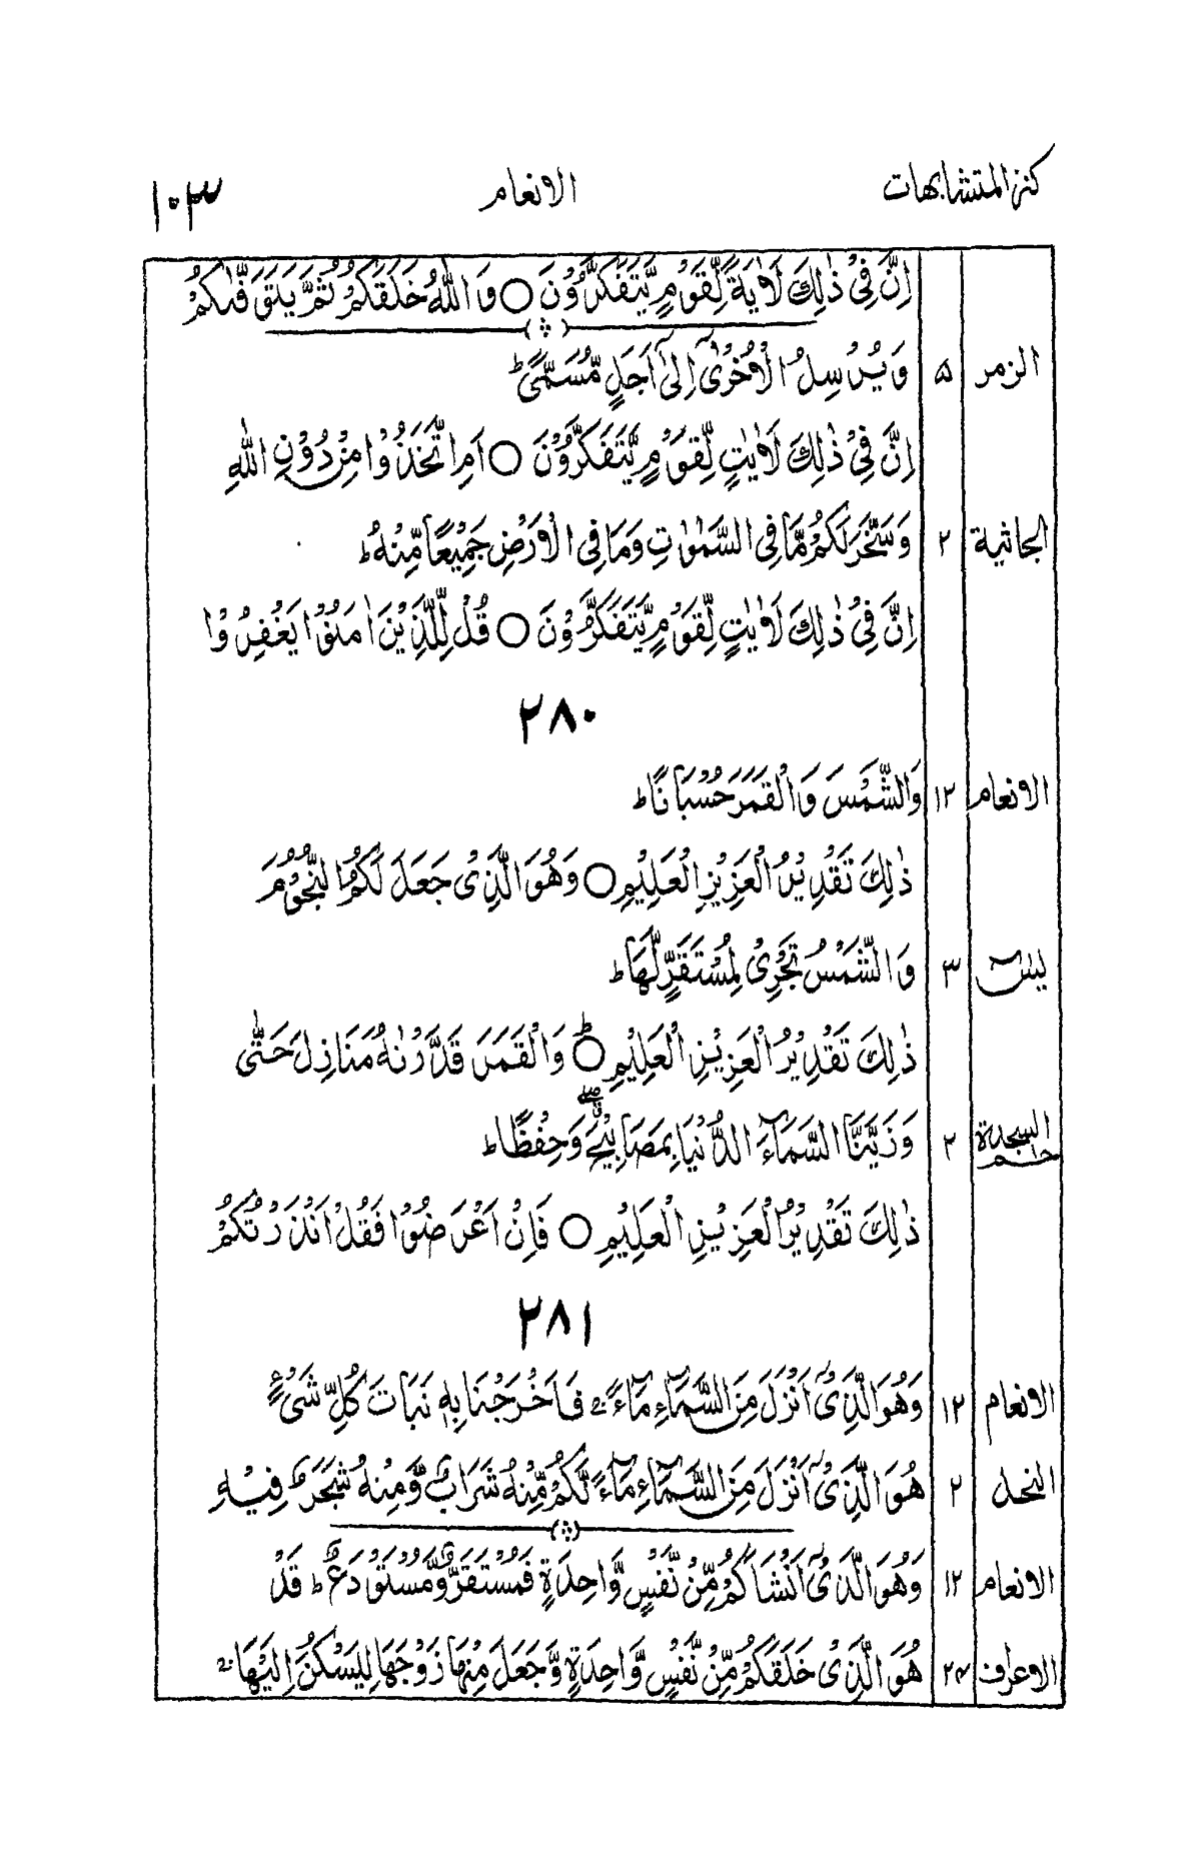 كنز المتشابهات الانعام ١٠٣
اِنَّ فِیْ ذٰلِكَ لَاٰیَةً لِّقَوْمٍ یَّتَفَكَّرُوْنَ ○ وَاللّٰهُ خَلَقَكُمْ ثُمَّ یَتَوَفّٰىكُمْ
الزمر ۵ وَیُرْسِلُ الْاُخْرٰۤى اِلٰۤى اَجَلٍ مُّسَمًّىؕ
اِنَّ فِیْ ذٰلِكَ لَاٰیٰتٍ لِّقَوْمٍ یَّتَفَكَّرُوْنَ ○ اَمِ اتَّخَذُوْا مِنْ دُوْنِ اللّٰهِ
الجاثية ٢ وَسَخَّرَ لَكُمْ مَّا فِی السَّمٰوٰتِ وَمَا فِی الْاَرْضِ جَمِیْعًا مِّنْهُؕ
اِنَّ فِیْ ذٰلِكَ لَاٰیٰتٍ لِّقَوْمٍ یَّتَفَكَّرُوْنَ ○ قُلْ لِّلَّذِیْنَ اٰمَنُوْا یَغْفِرُوْا
٢٨٠
الانعام ١٢ وَالشَّمْسَ وَالْقَمَرَ حُسْبَانًاؕ
ذٰلِكَ تَقْدِیْرُ الْعَزِیْزِ الْعَلِیْمِ ○ وَهُوَ الَّذِیْ جَعَلَ لَكُمُ النُّجُوْمَ
یٰسٓ ٣ وَالشَّمْسُ تَجْرِیْ لِمُسْتَقَرٍّ لَّهَاؕ
ذٰلِكَ تَقْدِیْرُ الْعَزِیْزِ الْعَلِیْمِ ○ؕ وَالْقَمَرَ قَدَّرْنٰهُ مَنَازِلَ حَتّٰى
حٰم السجدة ٢ وَزَیَّنَّا السَّمَآءَ الدُّنْیَا بِمَصَابِیْحَ ۖۗ وَحِفْظًاؕ
ذٰلِكَ تَقْدِیْرُ الْعَزِیْزِ الْعَلِیْمِ ○ فَاِنْ اَعْرَضُوْا فَقُلْ اَنْذَرْتُكُمْ
٢٨١
الانعام ١٢ وَهُوَ الَّذِیْۤ اَنْزَلَ مِنَ السَّمَآءِ مَآءً ۚ فَاَخْرَجْنَا بِهٖ نَبَاتَ كُلِّ شَیْءٍ
النحل ٢ هُوَ الَّذِیْۤ اَنْزَلَ مِنَ السَّمَآءِ مَآءً لَّكُمْ مِّنْهُ شَرَابٌ وَّمِنْهُ شَجَرٌ فِیْهِ
الانعام ١٢ وَهُوَ الَّذِیْۤ اَنْشَاَكُمْ مِّنْ نَّفْسٍ وَّاحِدَةٍ فَمُسْتَقَرٌّ وَّمُسْتَوْدَعٌؕ قَدْ
الاعراف ٢٤ هُوَ الَّذِیْ خَلَقَكُمْ مِّنْ نَّفْسٍ وَّاحِدَةٍ وَّجَعَلَ مِنْهَا زَوْجَهَا لِیَسْكُنَ اِلَیْهَاۚ